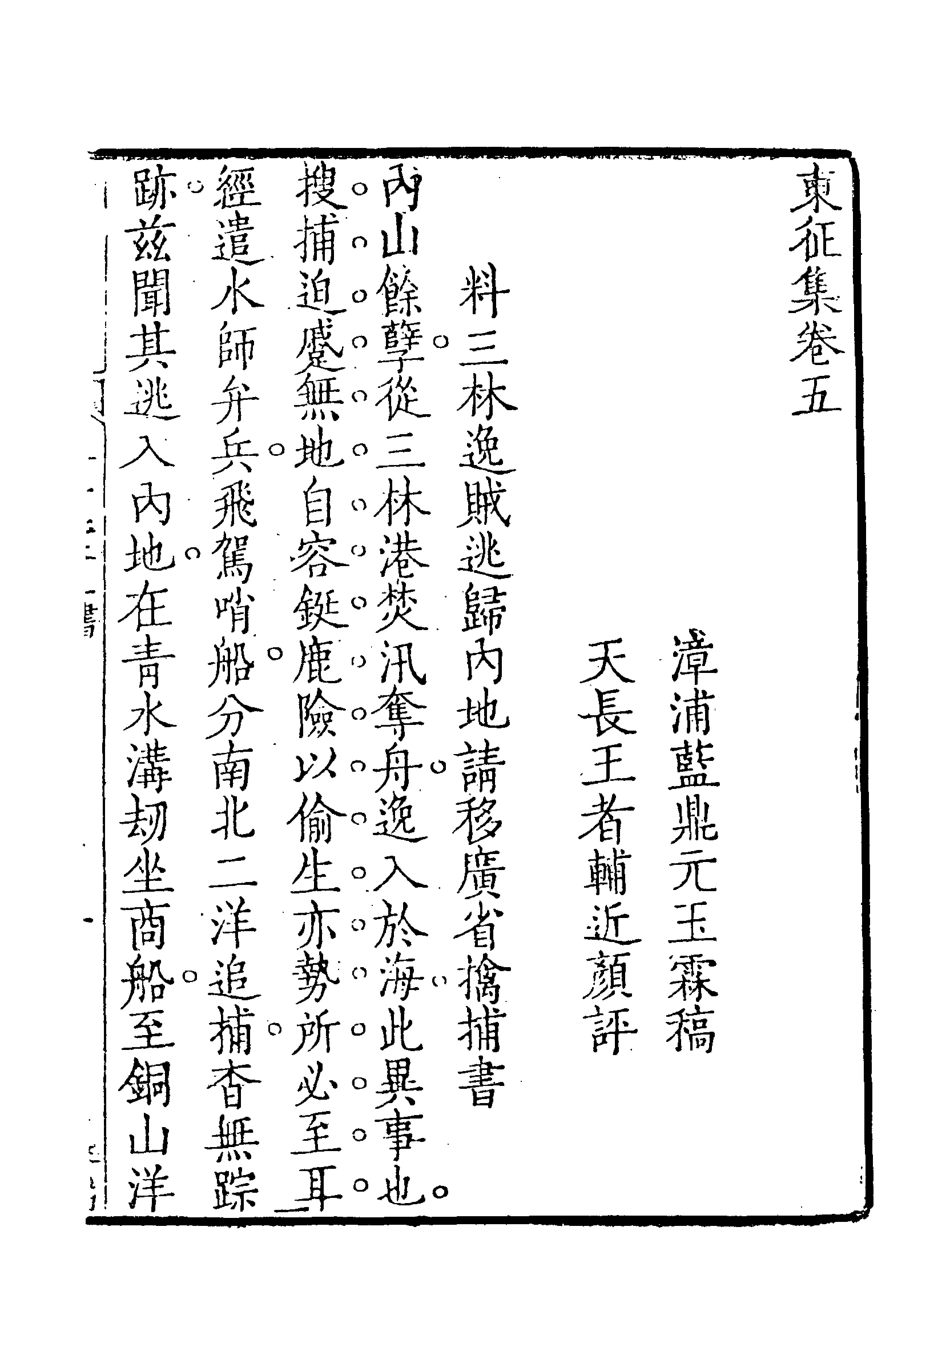 東征集卷五
漳浦藍鼎元玉霖稿
天長王者輔近顏評
料三林逸賊逃歸內地請移廣省擒捕書
內山餘孽從三林港焚汛奪舟逸入於海此異事也
搜捕迫蹙無地自容鋌鹿險以偷生亦勢所必至耳
經遣水師弁兵飛駕哨船分南北二洋追捕杳無踪
跡茲聞其逃入內地在青水溝劫坐商船至銅山洋